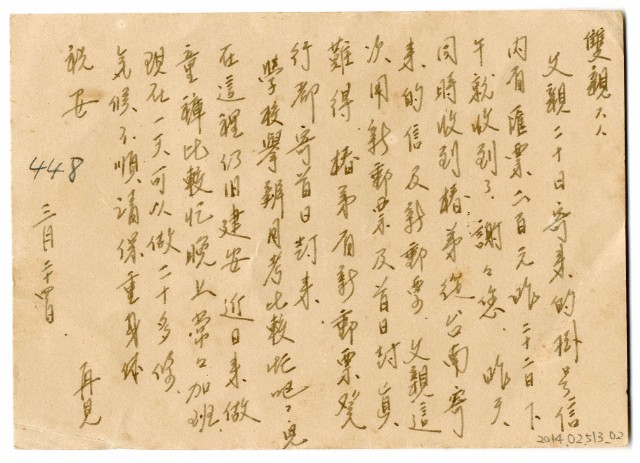 雙親大人
父親二十日寄来的掛号信
内有匯票六百元昨二十二日下
午就收到了謝々您 昨天
同時收到椿弟從台南寄
来的信及新郵票 父親這
次用新郵票及首日封真
難得 椿弟有新郵票發
行都寄首日封来
學校舉辦月考比較忙吧!兒
在這裡仍旧建安 近日来做
童褲比較忙晚上常々加班
現在一天可以做二十多條
气候不順請保重身体
祝安 再見
三月二十四日
448
2014.025.13_02